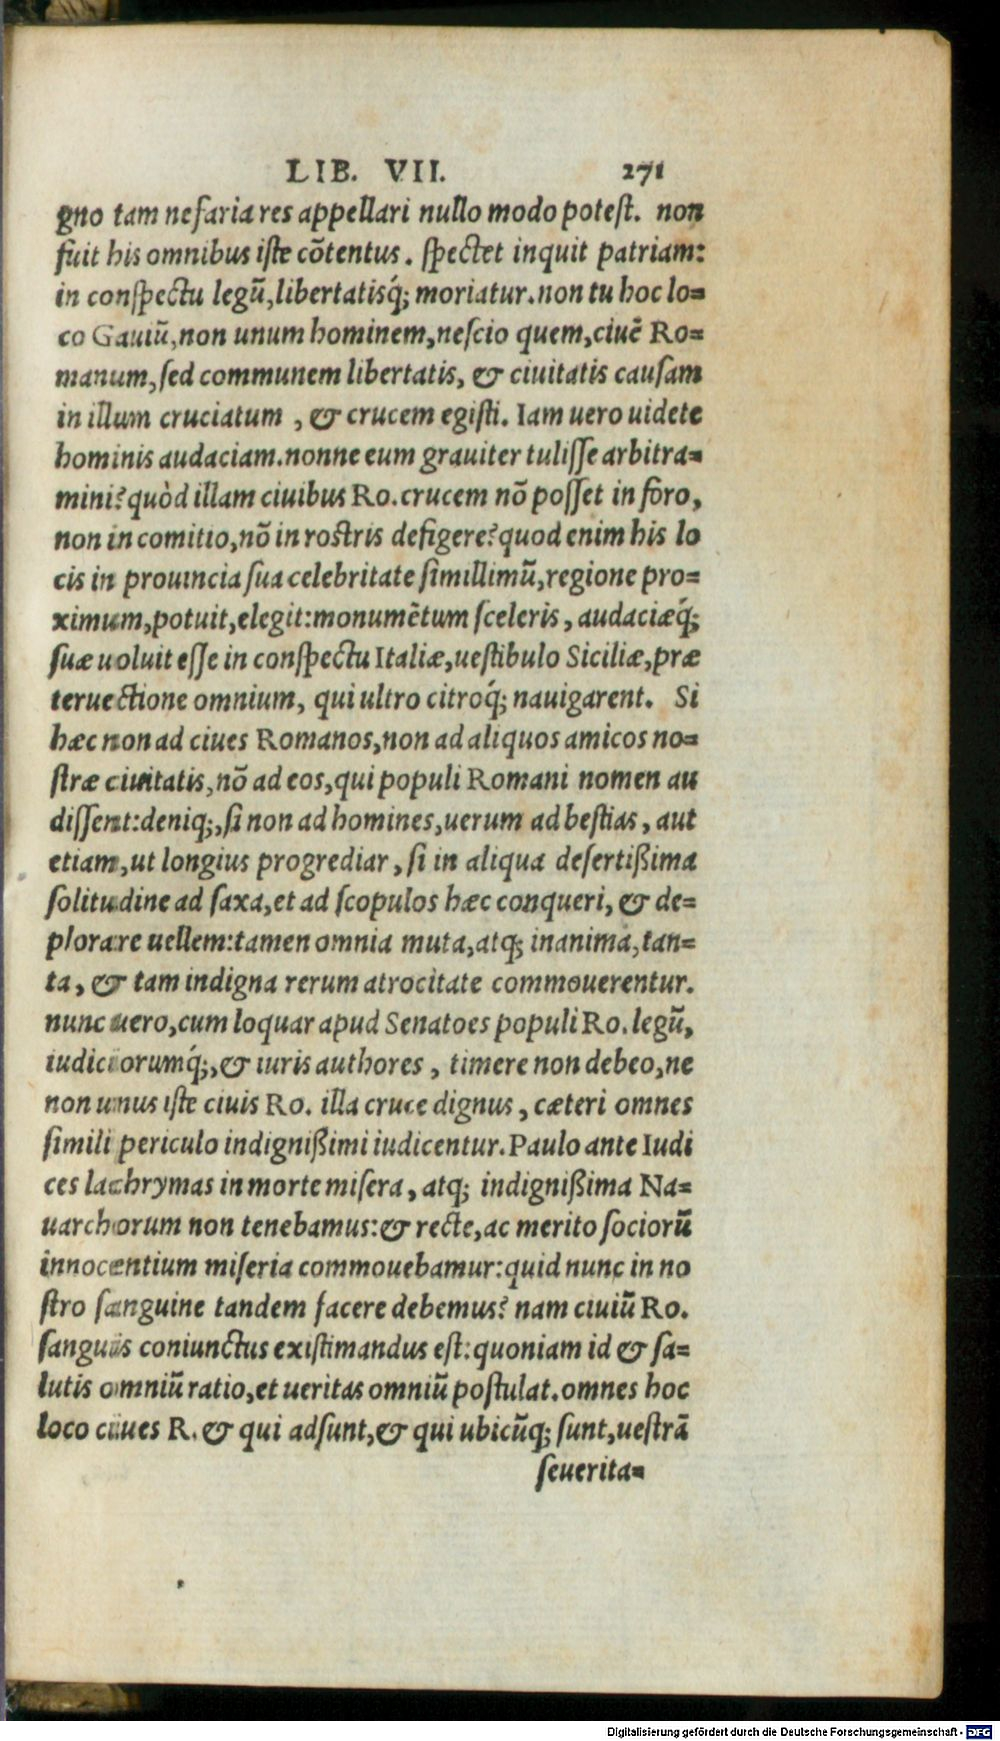 LIB. VII. 271
gno tam nefaria res appellari nullo modo potest. non
fuit his omnibus iste cõtentus. spectet inquit patriam:
in conspectu legũ, libertatisq́; moriatur. non tu hoc lo=
co Gauiũ, non unum hominem, nescio quem, ciuẽ Ro=
manum, sed communem libertatis, & ciuitatis causam
in illum cruciatum , & crucem egisti. Iam uero uidete
hominis audaciam. nonne eum grauiter tulisse arbitra=
mini? quòd illam ciuibus Ro. crucem nõ posset in foro,
non in comitio, nõ in rostris defigere? quod enim his lo
cis in prouincia sua celebritate simillimũ, regione pro=
ximum, potuit, elegit: monumẽtum sceleris, audaciæq́;
suæ uoluit esse in conspectu Italiæ, uestibulo Siciliæ, præ
teruectione omnium, qui ultro citroq́; nauigarent. Si
hæc non ad ciues Romanos, non ad aliquos amicos no=
stræ ciuitatis, nõ ad eos, qui populi Romani nomen au
dissent: deniq;, si non ad homines, uerum ad bestias, aut
etiam, ut longius progrediar, si in aliqua desertißima
solitudine ad saxa, et ad scopulos hæc conqueri, & de=
plorare uellem: tamen omnia muta, atq; inanima, tan=
ta, & tam indigna rerum atrocitate commouerentur.
nunc uero, cum loquar apud Senatoes populi Ro. legũ,
iudiciorumq́;, & iuris authores, timere non debeo, ne
non unus iste ciuis Ro. illa cruce dignus, cæteri omnes
simili periculo indignißimi iudicentur. Paulo ante Iudi
ces lachrymas in morte misera, atq; indignißima Na=
uarchorum non tenebamus: & recte, ac merito sociorũ
innocentium miseria commouebamur: quid nunc in no
stro sanguine tandem facere debemus? nam ciuiũ Ro.
sanguis coniunctus existimandus est: quoniam id & sa=
lutis omniũ ratio, et ueritas omniũ postulat. omnes hoc
loco ciues R. & qui adsunt, & qui ubicũq; sunt, uestrã
seuerita=
Digitalisierung gefördert durch die Deutsche Forschungsgemeinschaft - DFG